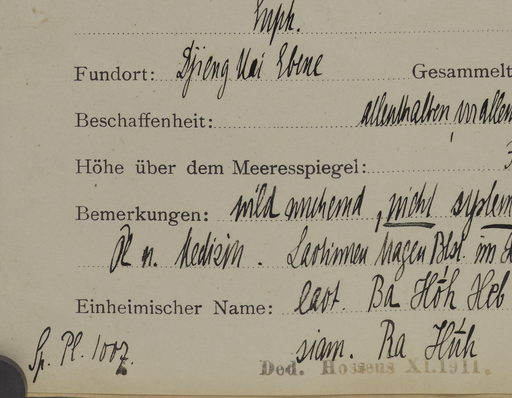 Euph.
Fundort: Djieng Mai Ebene Gesammelt
Beschaffenheit: allenthalben,
Höhe über dem Meeresspiegel:
Bemerkungen: wild wuchernd, nicht
Pl. n. Medizin. Laotinnen tragen Blst. im
Einheimischer Name: laot. Ba Hŏh Heb
Sp. Pl. 1007. siam. Ra Hŭh
Ded. Hosseus XI.1911.